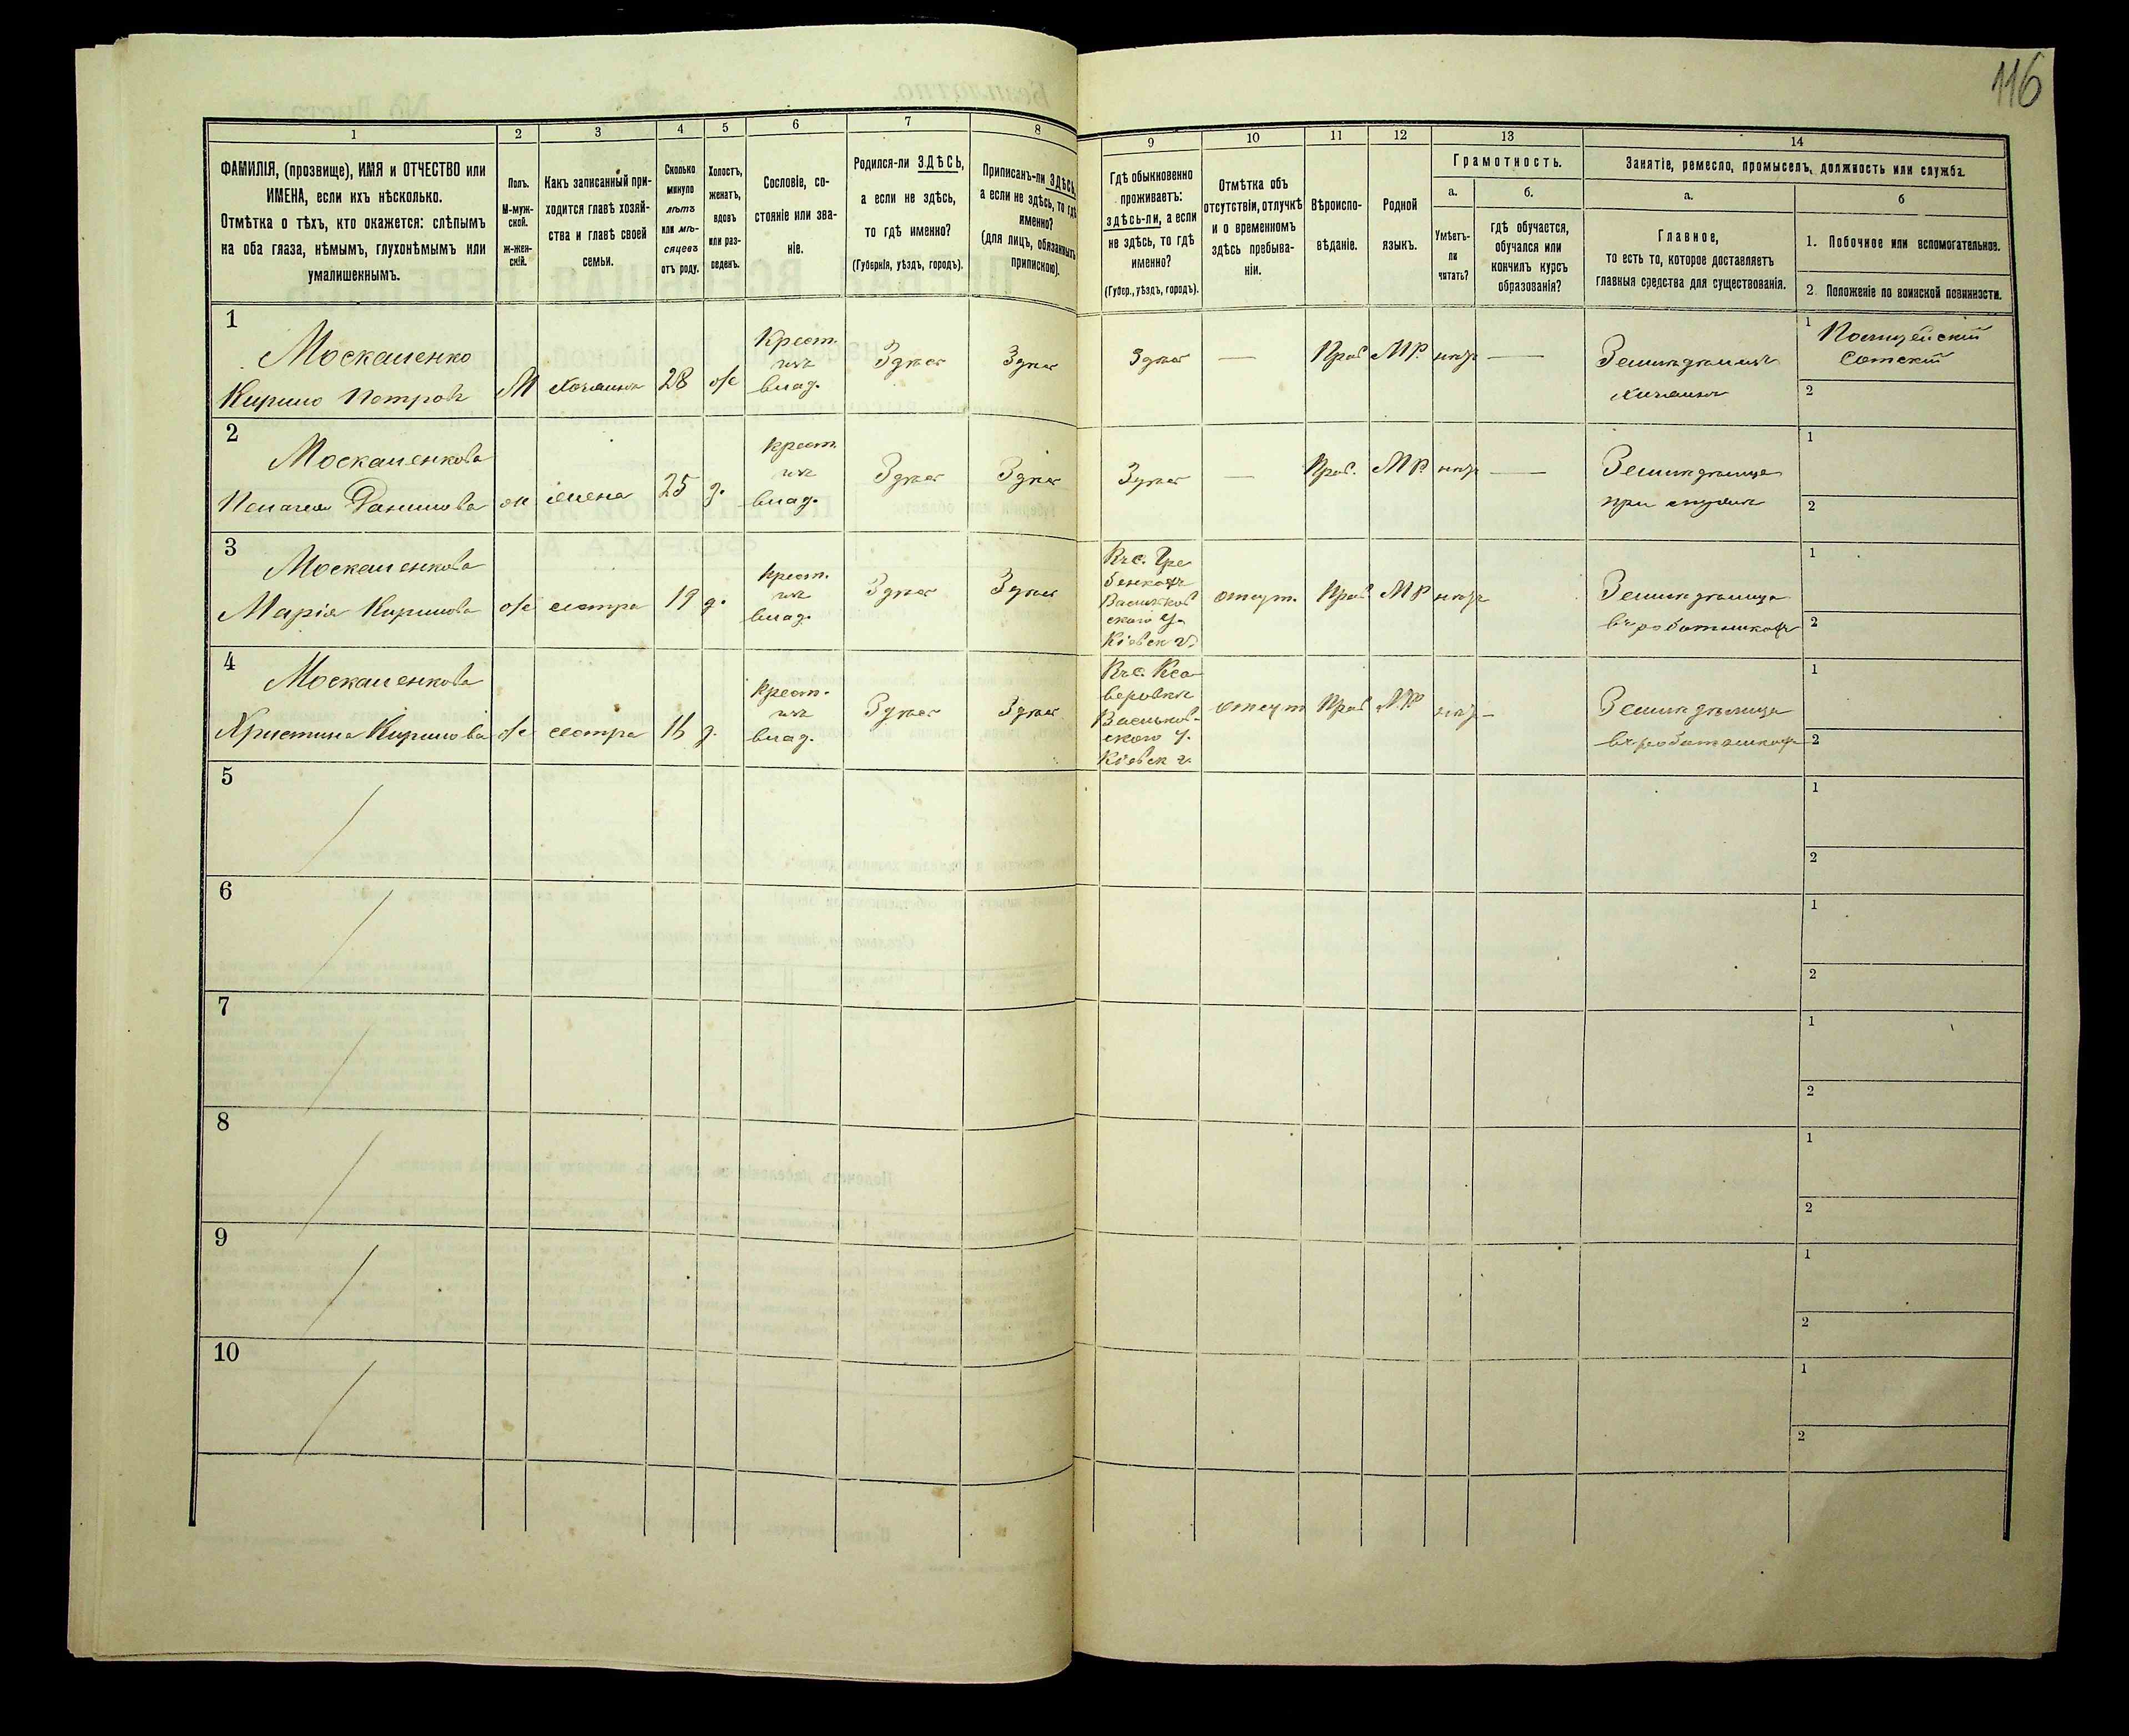 116
1
2
3
4
5
6
7
8
9
10
11
12
13
14
ФАМИЛІЯ, (прозвище), ИМЯ и ОТЧЕСТВО или
ИМЕНА, если ихъ нѣсколько.
Отмѣтка о тѣхъ, кто окажется: слѣпымъ
на оба глаза, нѣмымъ, глухонѣмымъ или
умалишеннымъ.
Полъ.
М-муж-
ской.
ж-жен-
скій.
Какъ записанный при-
ходится главѣ хозяй-
ства и главѣ своей
семьи.
Сколько
минуло
лѣтъ
или мѣ-
сяцевъ
отъ роду.
Холостъ,
женатъ,
вдовъ
или раз-
веденъ.
Сословіе, со-
стояніе или зва-
ніе.
Родился-ли ЗДѢСЬ,
а если не здѣсь,
то гдѣ именно?
(Губернія, уѣздъ, городъ).
Приписанъ-ли ЗДѢСЬ,
а если не здѣсь, то гдѣ
именно?
(для лицъ, обязанныхъ
припискою).
Гдѣ обыкновенно
проживаетъ:
здѣсь-ли, а если
не здѣсь, то гдѣ
именно?
(Губер., уѣздъ, городъ).
Отмѣтка объ
отсутствіи, отлучкѣ
и о временномъ
здѣсь пребыва-
ніи.
Вѣроиспо-
вѣданіе.
Родной
языкъ.
Грамотность.
а.
б.
Умѣетъ-
ли
читать?
гдѣ обучается,
обучался или
кончилъ курсъ
образованія?
Занятіе, ремесло, промыселъ, должность или служба.
а.
б
Главное,
то есть то, которое доставляетъ
главныя средства для существованія.
1. Побочное или вспомогательное.
2. Положеніе по воинской повинности.
1
Москаленко
Кирило Петровъ
М
хозяинъ
28
ж
Крест.
изъ
влад.
Здѣсь
Здѣсь
Здѣсь
—
Прав
МР.
нѣтъ
—
Земледѣлецъ
хозяинъ
1
Полицейскій
Сотскій
2
2
Москаленкова
Пелагея Данилова
ж
жена
25
з.
Крест.
изъ
влад.
Здѣсь
Здѣсь
Здѣсь
—
Прав.
МР.
нѣтъ
—
Земледѣлица
при мужѣ
1
2
3
Москаленкова
Марія Кирилова
ж
сестра
19
д.
Крест.
изъ
влад.
Здѣсь
Здѣсь
Въ с. Гре
бенкахъ
Васильков
скаго у.
Кіевск г.
отсут.
Прав
МР
нѣтъ
Земледѣлица
въ работникахъ
1
2
4
Москаленкова
Христина Кирилова
ж
сестра
16
д.
Крест.
изъ
влад.
Здѣсь
Здѣсь
Въ с. Кса
веровкѣ
Васильков-
скаго у.
Кіевск г.
отсут
Прав
МР
нѣтъ
—
Земледѣлица
въ работникахъ
1
2
5
1
2
6
1
2
7
1
2
8
1
2
9
1
2
10
1
2